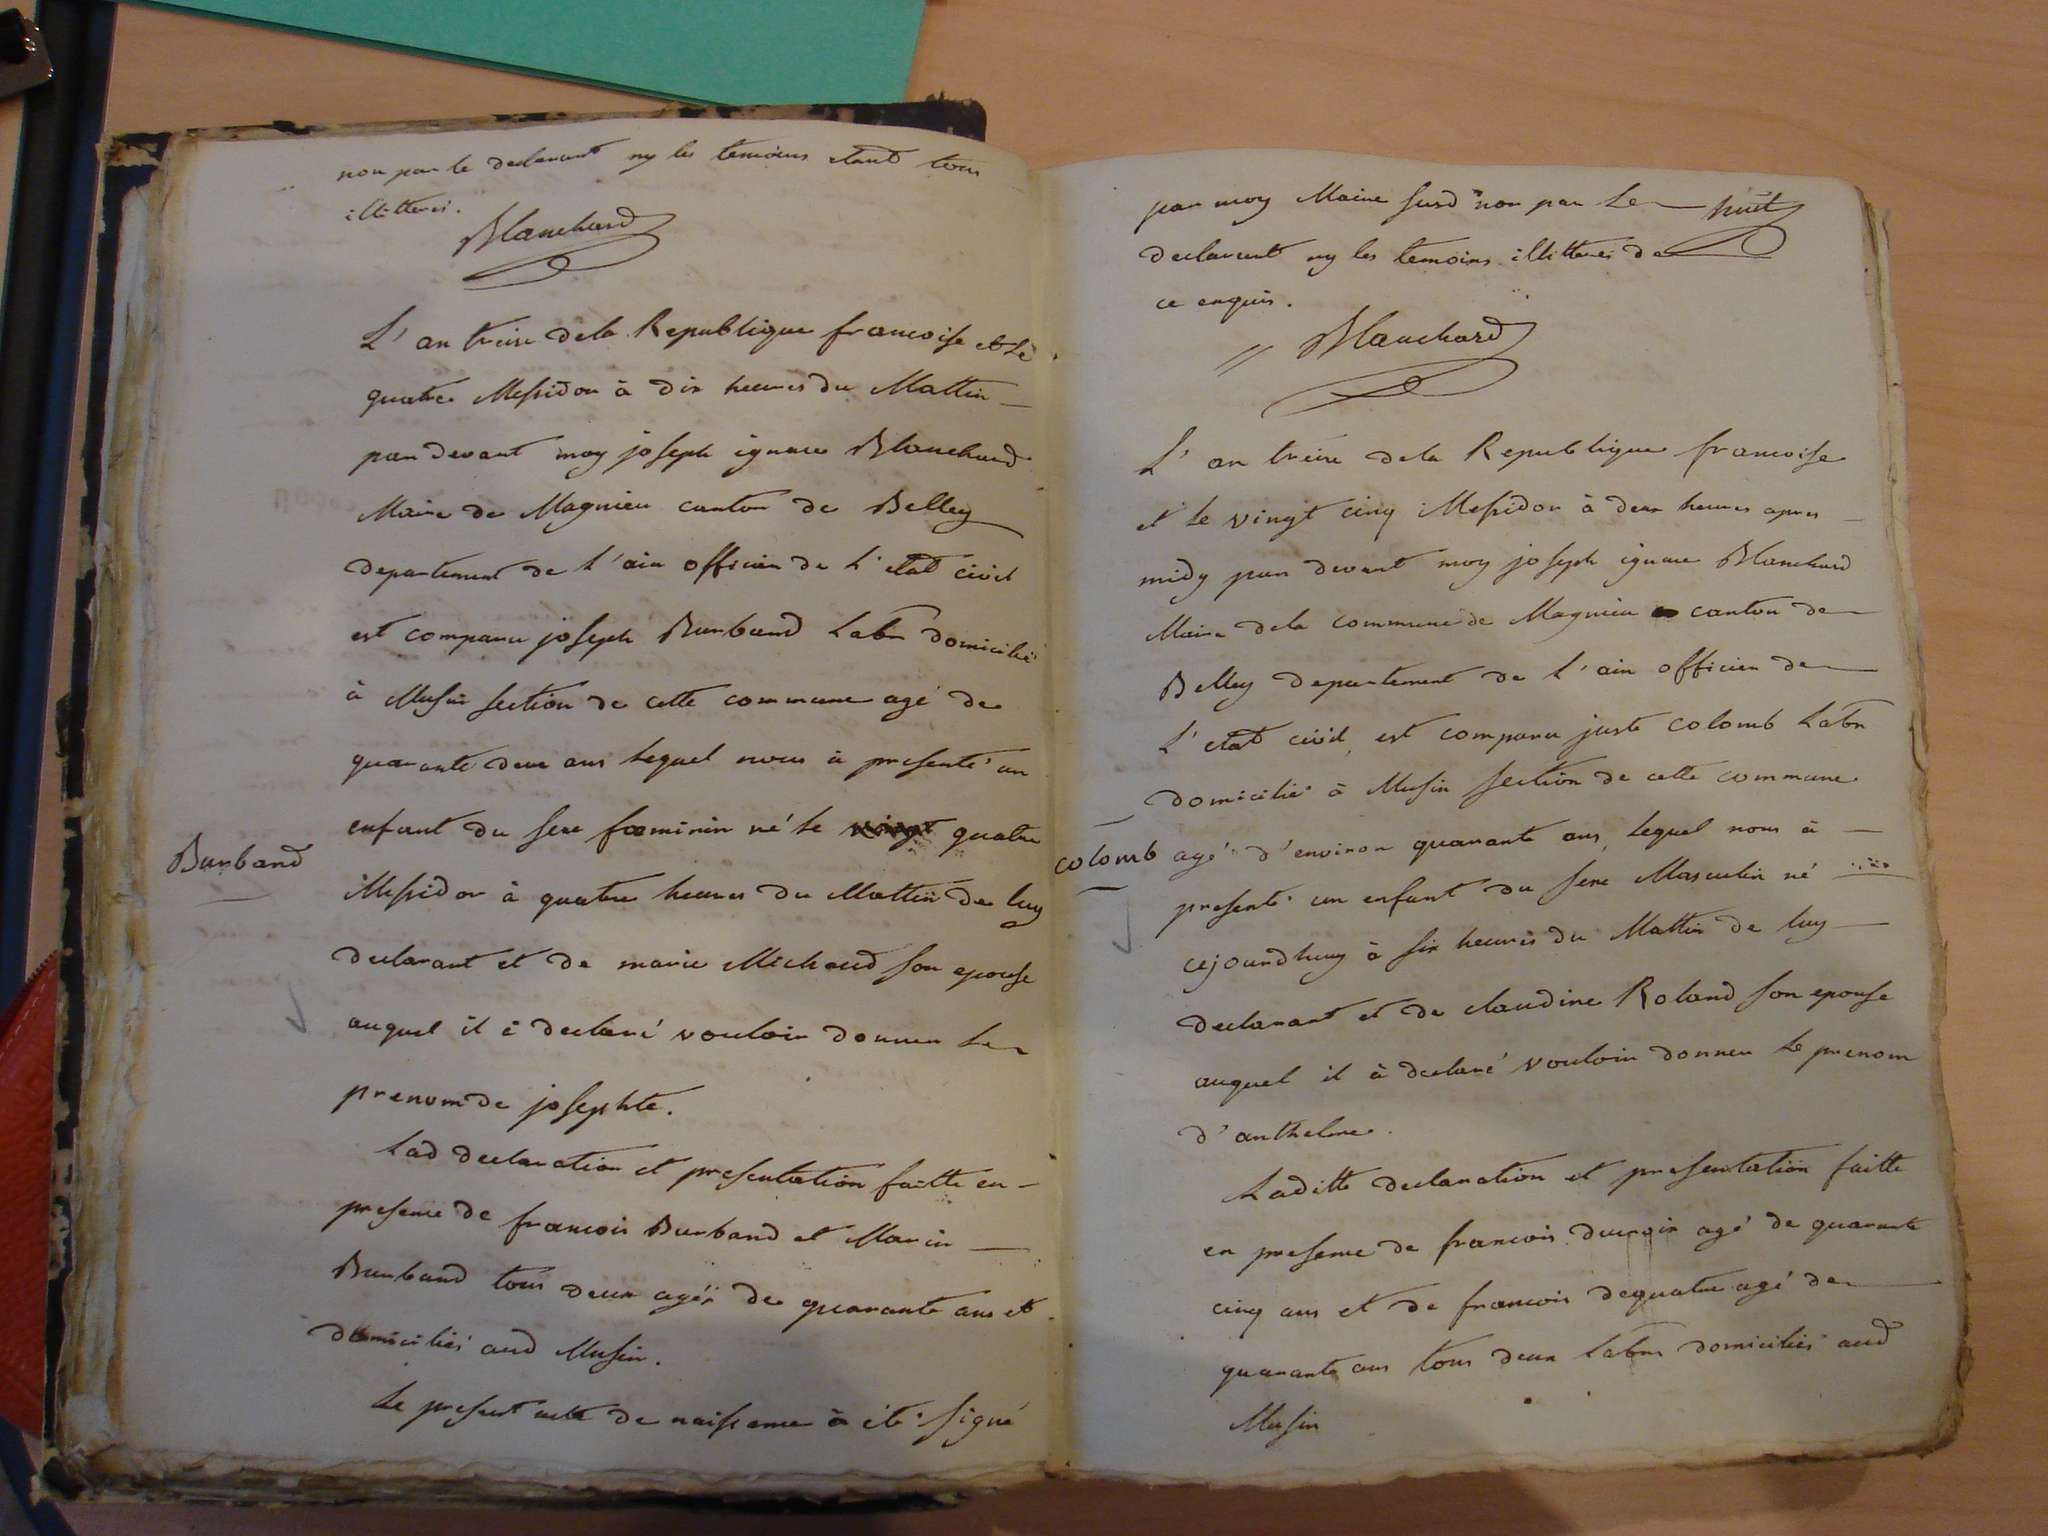 non par le declarant ny les temoins etant tous
illitterés.
Blanchard
L'an treize de la Republique francoise et le
quatre Messidor à dix heures du Mattin
par devant moy joseph ignace Blanchard
Maire de Magnieu canton de Belley
departement de l'ain officier de l'etat civil
est comparu joseph Burband Labr domicilié
à Musin section de cette commune agé de
quarante deux ans lequel nous à presenté un
enfant du sexe fœminin né le vingt quatre
Burband
Messidor à quatre heures du Mattin de luy
declarant et de marie Michaud son epouse
auquel il à declaré vouloir donner le
prenom de josephte.
Lad declaration et presentation faitte en
presence de francois Burband et Marin
Burband tous deux agés de quarante ans et
domiciliés aud Musin.
Le present acte de naissance à été signé
par moy Maire susd non par le huit
declarant ny les temoins illitterés de
ce enquis.
Blanchard
L'an treize de la Republique francoise
et le vingt cinq Messidor à deux heures apres
midy par devant moy joseph ignace Blanchard
Maire de la commune de Magnieu canton de
Belley departement de l'ain officier de
L'etat civil, est comparu juste colomb Labr
domicilié à Musin section de cette commune
colomb
agé d'environ quarante ans, lequel nous à
presenté un enfant du sexe Masculin né
cejourdhuy à six heures du Mattin de luy
declarant et de claudine Roland son epouse
auquel il à declaré vouloir donner le prenom
d'anthelme.
Laditte declaration et presentation faitte
en presence de francois ducroix agé de quarante
cinq ans et de francois dequatre agé de
quarante ans tous deux Labrs domiciliés aud
Musin